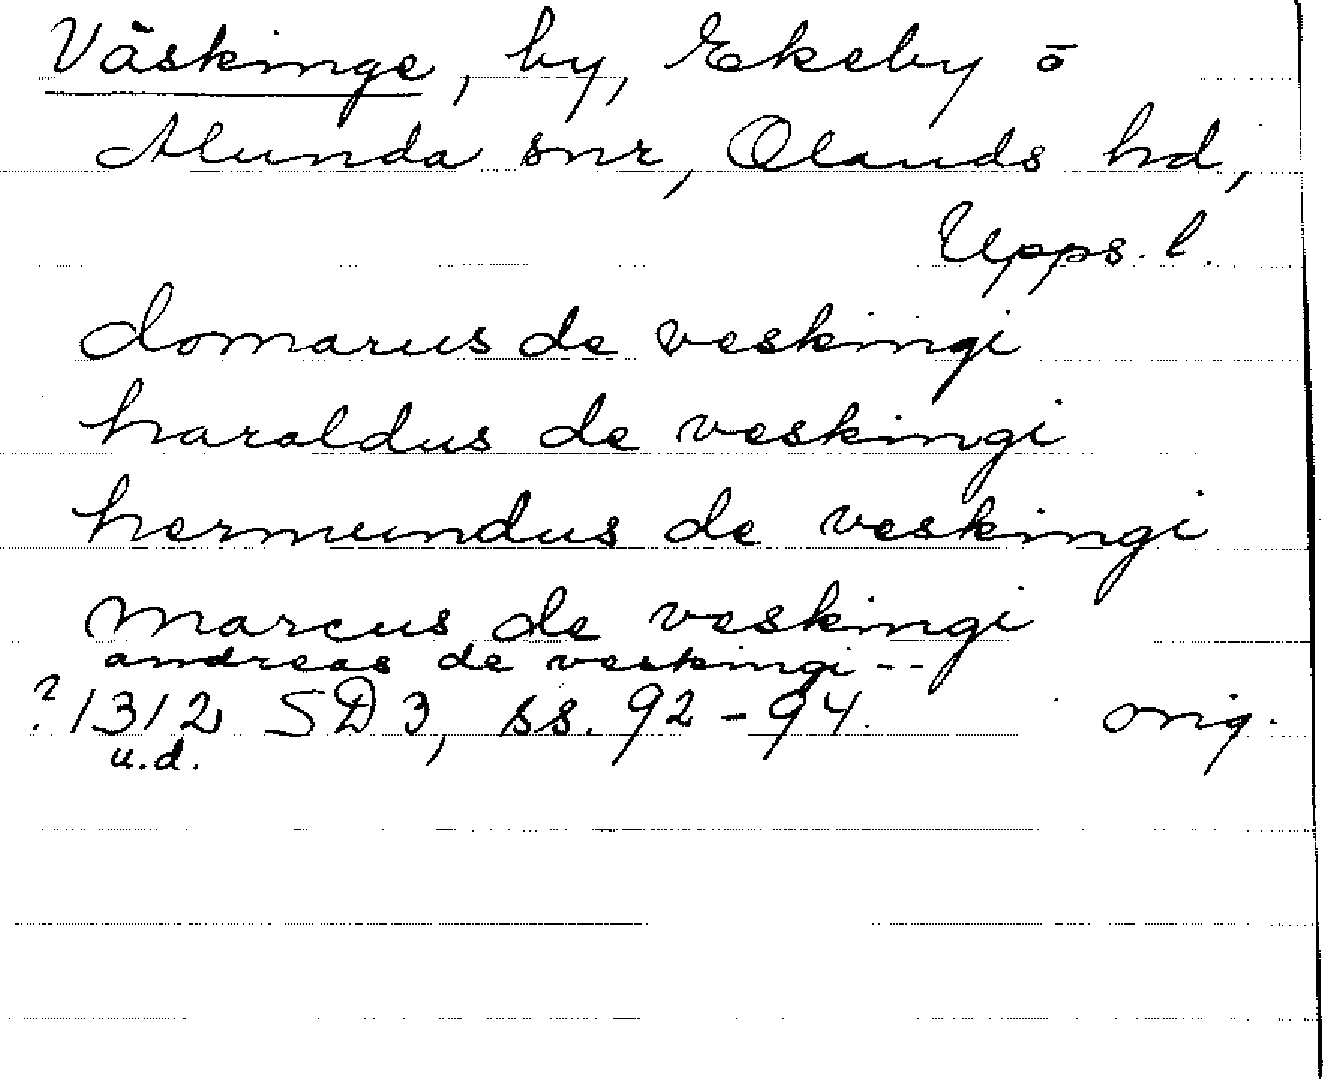 Väskinge, by, Ekeby o
Alunda snr, Olands hd,
Upps. l.
domarus de veskingi
haraldus de veskingi
hermundus de veskingi
marcus de veskingi
andreas de veskingi --
? 1312 SD3, ss. 92-94. orig.
u.d.